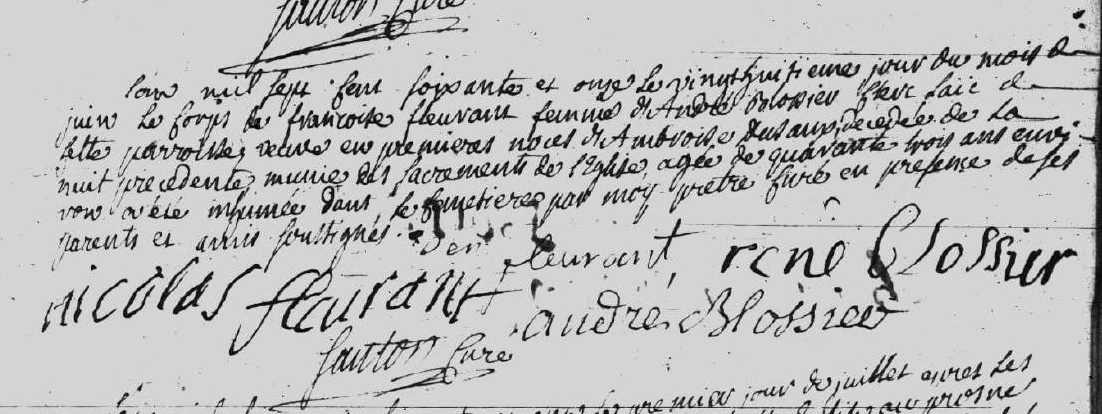 Santon Curé
L'an mil sept cent soixante et onze le vingthuitieme jour du mois de
juin le corps de francoise fleurant femme d'André Blossier clerc laic de
cette parroisse, veuve en premieres noces d'Ambroise decedée de la
nuit precedente munie des sacrements de l'Eglise, agée de quarante trois ans envi-
ron a été inhumée dans le cemetiere par moy pretre curé en presence de ses
parents et amis soussignés.
fleurant rené Blossier
nicolas fleurant
andré Blossier
Santon Curé
premier jour de juillet apres les
prosnes